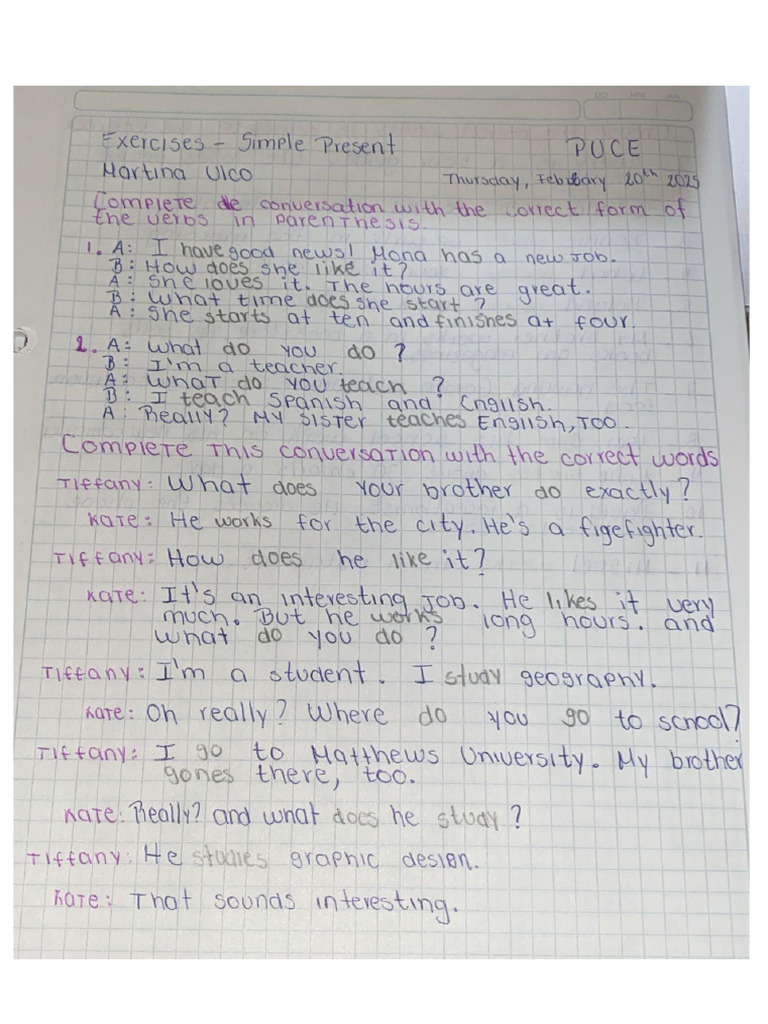 Exercises - Simple Present PUCE
Martina Ulco Thursday, February 20th 2025
Complete de conversation with the correct form of
the verbs in parenthesis.
1. A: I have good news! Mona has a new job.
B: How does she like it?
A: She loves it. The hours are great.
B: What time does she start?
A: She starts at ten and finishes at four.
2. A: What do you do?
B: I'm a teacher.
A: What do you teach?
B: I teach Spanish and English.
A: Really? My sister teaches English, too.
Complete this conversation with the correct words
Tiffany: What does your brother do exactly?
Kate: He works for the city. He's a figefighter.
Tiffany: How does he like it?
Kate: It's an interesting job. He likes it very
much. But he works long hours. and
what do you do?
Tiffany: I'm a student. I study geography.
Kate: Oh really? Where do you go to school?
Tiffany: I go to Matthews University. My brother
gones there, too.
Kate: Really? and what does he study?
Tiffany: He studies graphic design.
Kate: That sounds interesting.